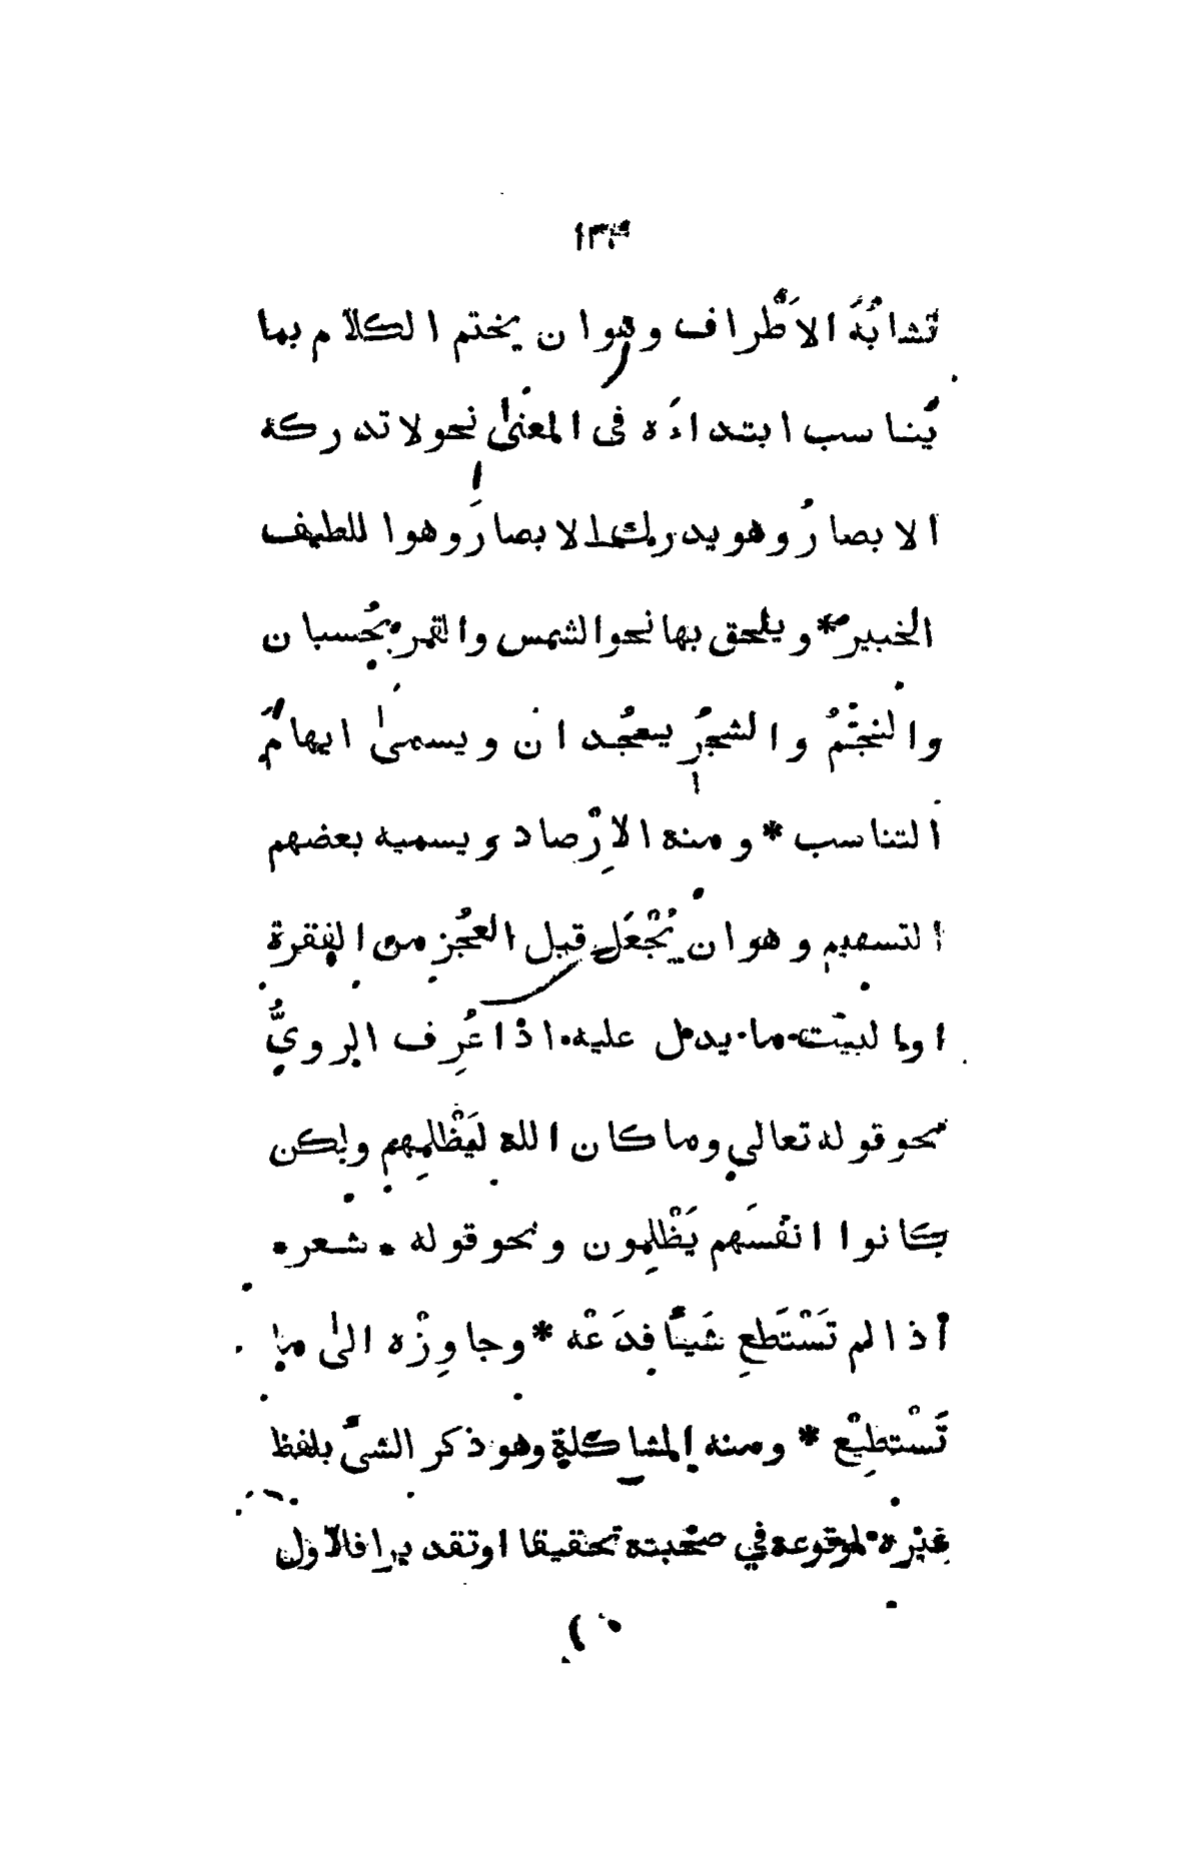 تشابُهَ الاَطْراف وهو ان يختم الكلام بما
يُناسب ابتداءَه فى المعنىٰ نحو لا تدركه
الابصارُ وهو يدرك الابصارَ وهو اللطيف
الخبير * ويلحق بها نحو الشمس والقمر بحُسبان
والنجْمُ والشجرُ يسجُدان ويسمىٰ ايهامَ
التناسب * ومنه الاِرْصاد ويسميه بعضهم
التسهيم وهو ان يُجْعَل قبل العجُز من الفقرة
او البيت ما يدل عليه اذا عُرِف الرويُّ
نحو قوله تعالي وما كان الله ليَظْلِمهم ولكن
كانوا انفسَهم يَظْلِمون ونحو قوله • شعر •
اذا لم تَسْتَطِع شَيئًا فدَعْه * وجاوِزْه الىٰ ما
تَسْتطِيْع * ومنه المشاكلة وهو ذكر الشئ بلفظ
غيْره لوقوعه في صحْبته تحقيقا او تقديرا فالاول